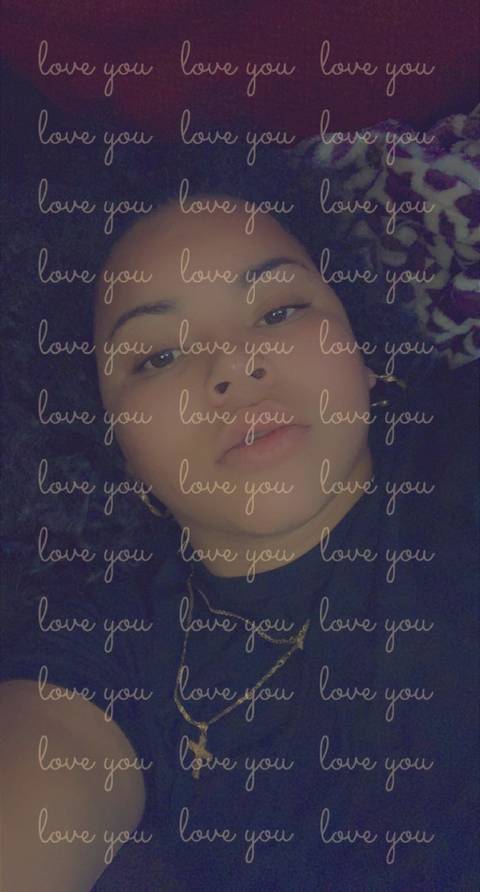 love you love you love you
love you love you love you
love you love you love you
love you love you love you
love you love you love you
love you love you love you
love you love you love you
love you love you love you
love you love you love you
love you love you love you
love you love you love you
love you love you love you